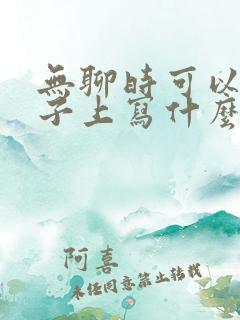 無聊時可以
子上寫什麼
阿喜
未任同意禁止转载